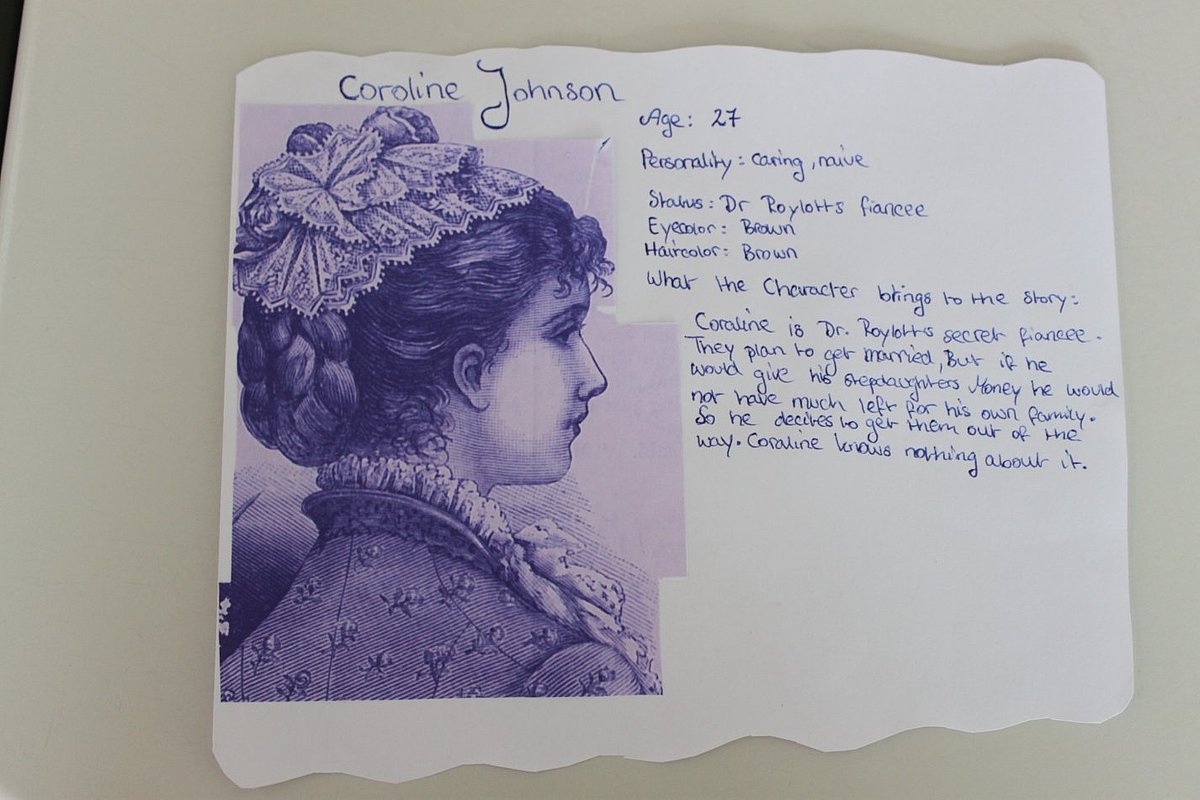 Coroline Johnson
Age: 27
Personality: caring, naive
Status: Dr Roylotts fiancee
Eyecolor: Brown
Haircolor: Brown
What the Character brings to the story:
Coraline is Dr. Roylotts secret fiancee.
They plan to get married, But if he
would give his stepdaughters Money he would
not have much left for his own family.
So he decites to get them out of the
way. Coraline knows nothing about it.